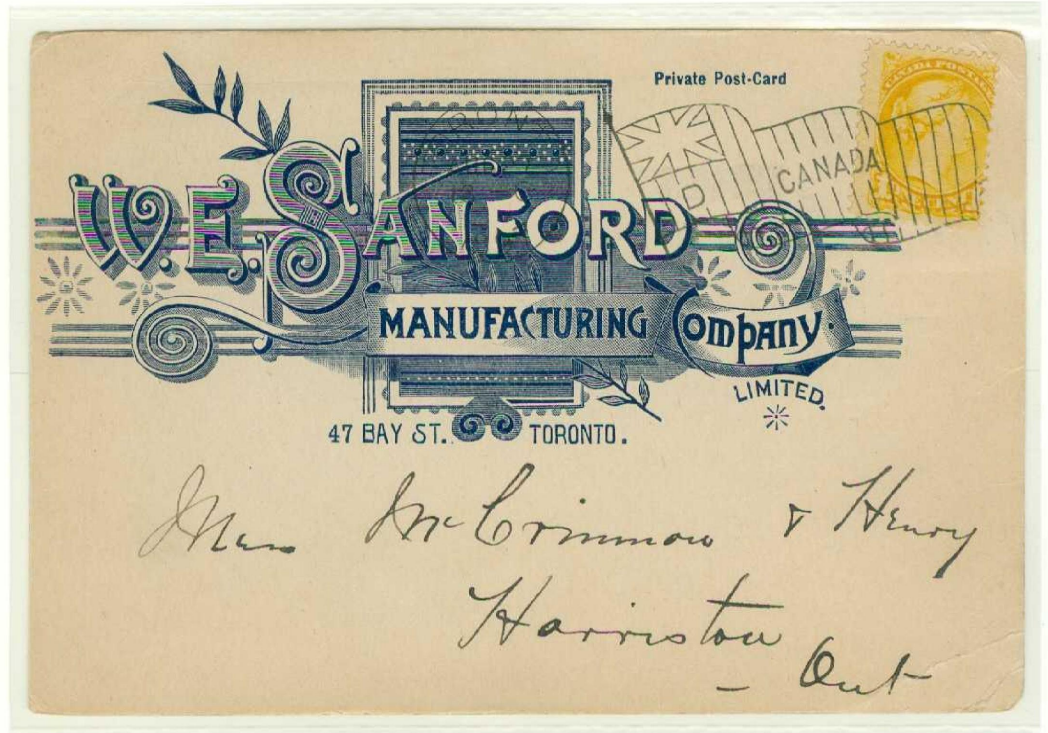 Private Post-Card
CANADA POSTAGE
CANADA
D
W.E. SANFORD
MANUFACTURING COMPANY.
LIMITED.
47 BAY ST. TORONTO.
Mess McCrimmon & Henry
Harriston
Ont